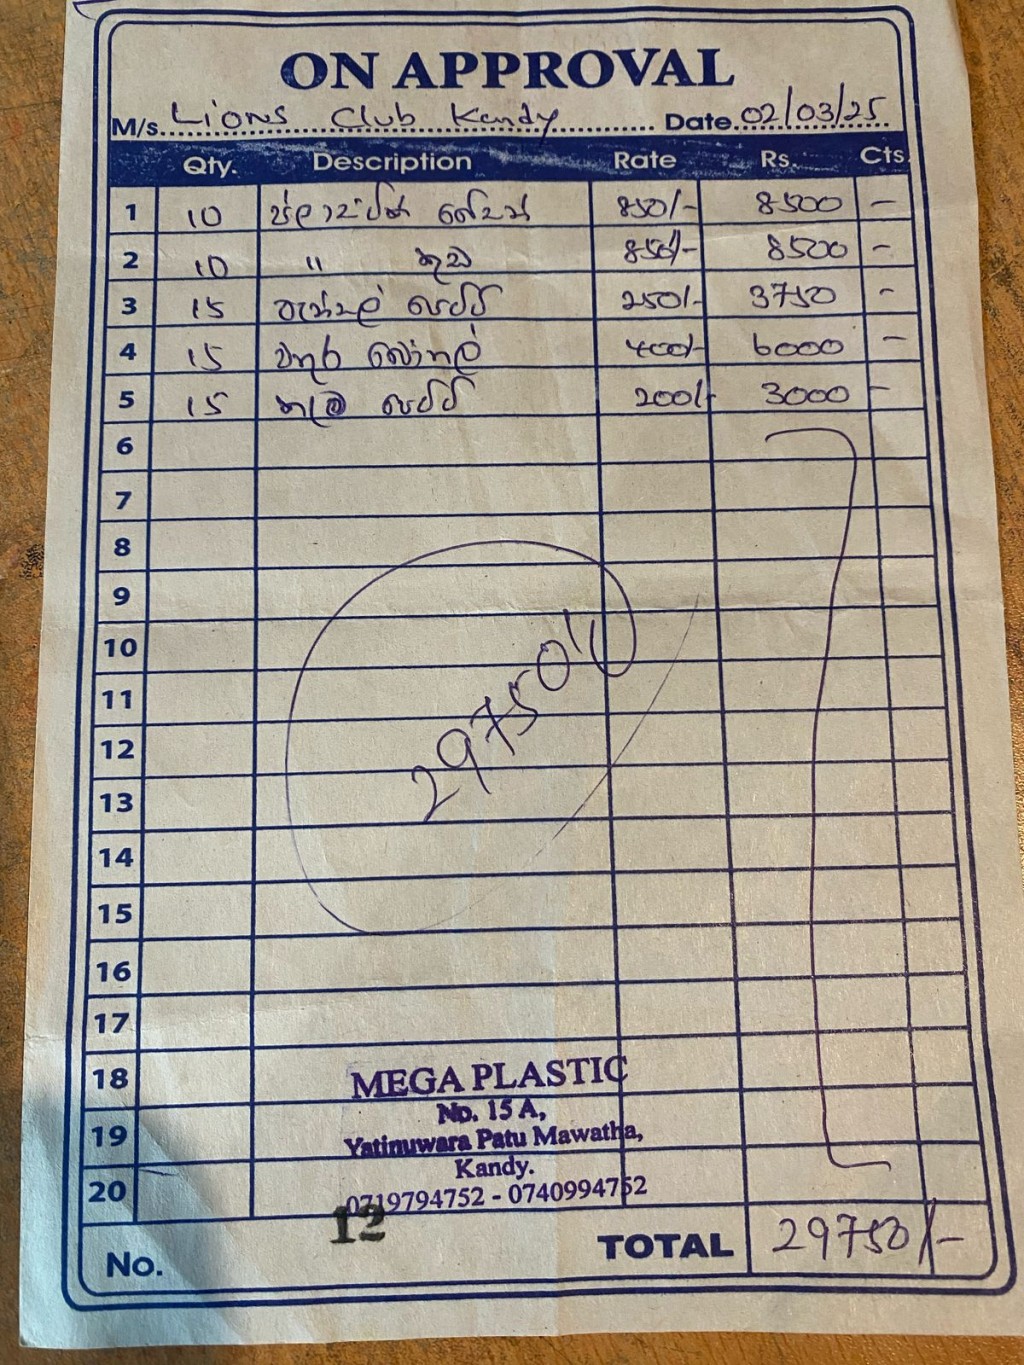 ON APPROVAL
M/s. Lions Club Kandy Date 02/03/25
Qty. Description Rate Rs. Cts.
1 10 ප්ලාස්ටික් බේසන් 850/- 8500 -
2 10 " කූඩ 850/- 8500 -
3 15 පැන්සල් පෙට්ටි 250/- 3750 -
4 15 වතුර බෝතල් 400/- 6000 -
5 15 කෑම පෙට්ටි 200/- 3000 -
6
7
8
9
10
11
12
13
14
15
16
17
18
19
20
29750/-
MEGA PLASTIC
No. 15 A,
Yatinuwara Patu Mawatha,
Kandy.
0719794752 - 0740994752
No. 12 TOTAL 29750/-